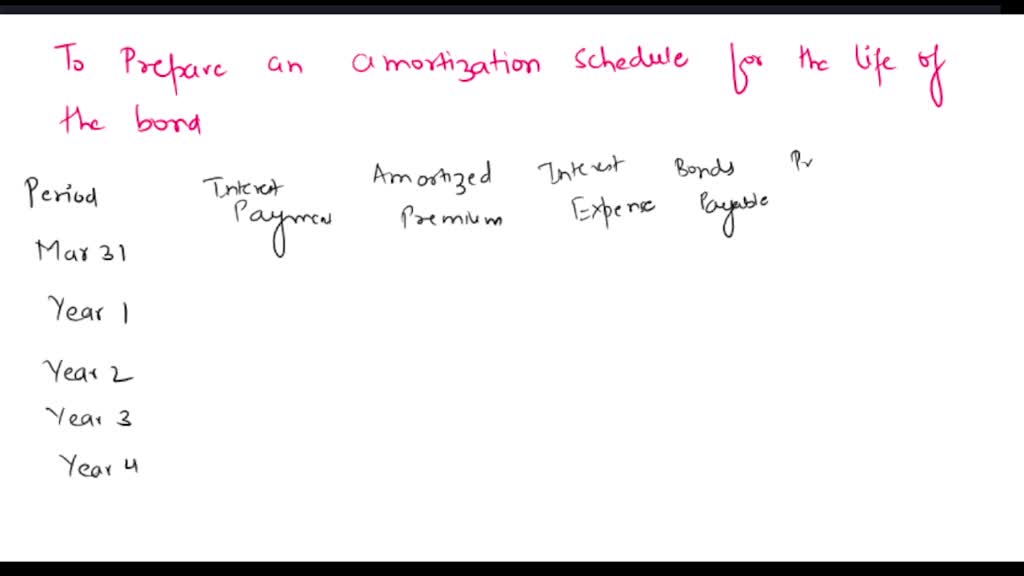 To Prepare an amortization schedule for the life of
the bond
Period Interest Payment Amortized Premium Interest Expense Bonds Payable Pr
Mar 31
Year 1
Year 2
Year 3
Year 4